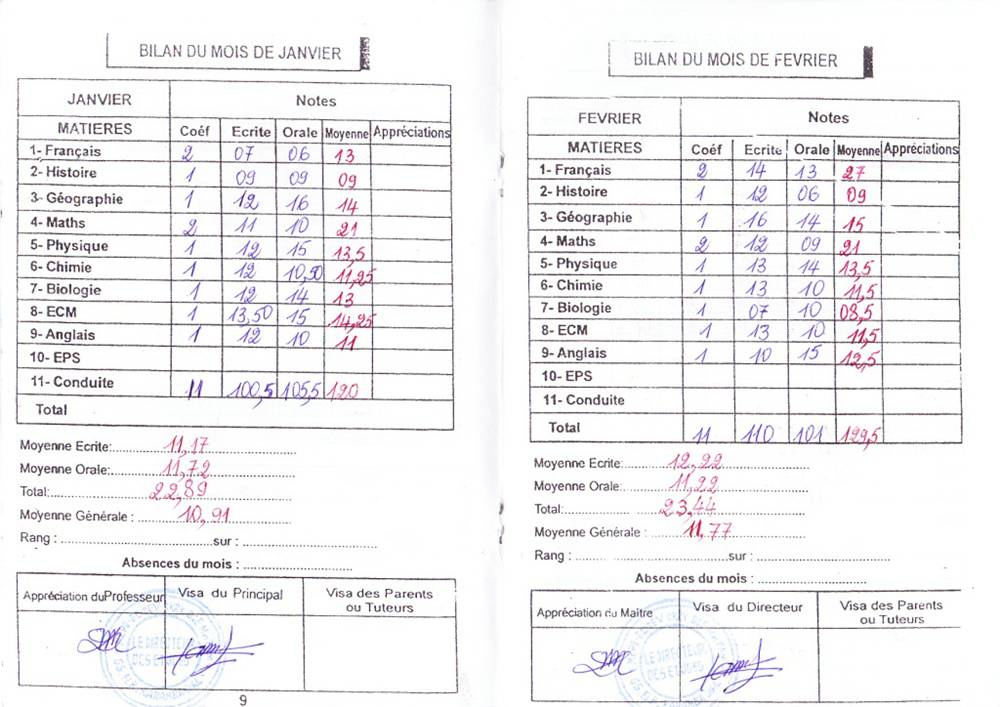 BILAN DU MOIS DE JANVIER
JANVIER Notes
MATIERES Coéf Ecrite Orale Moyenne Appréciations
1- Français 2 07 06 13
2- Histoire 1 09 09 09
3- Géographie 1 12 16 14
4- Maths 2 11 10 21
5- Physique 1 12 15 13,5
6- Chimie 1 12 10,50 11,25
7- Biologie 1 12 14 13
8- ECM 1 13,50 15 14,25
9- Anglais 1 12 10 11
10- EPS
11- Conduite 11 100,5 105,5 120
Total
Moyenne Ecrite: 11,17
Moyenne Orale: 11,72
Total: 22,89
Moyenne Générale : 10,91
Rang : sur :
Absences du mois :
Appréciation du Professeur Visa du Principal Visa des Parents
ou Tuteurs
LE DIRECTEUR
DES ETUDES
9
BILAN DU MOIS DE FEVRIER
FEVRIER Notes
MATIERES Coéf Ecrite Orale Moyenne Appréciations
1- Français 2 14 13 27
2- Histoire 1 12 06 09
3- Géographie 1 16 14 15
4- Maths 2 12 09 21
5- Physique 1 13 14 13,5
6- Chimie 1 13 10 11,5
7- Biologie 1 07 10 08,5
8- ECM 1 13 10 11,5
9- Anglais 1 10 15 12,5
10- EPS
11- Conduite
Total 11 110 101 129,5
Moyenne Ecrite: 12,22
Moyenne Orale: 11,22
Total: 23,44
Moyenne Générale : 11,77
Rang : sur :
Absences du mois :
Appréciation du Maitre Visa du Directeur Visa des Parents
ou Tuteurs
LE DIRECTEUR
DES ETUDES